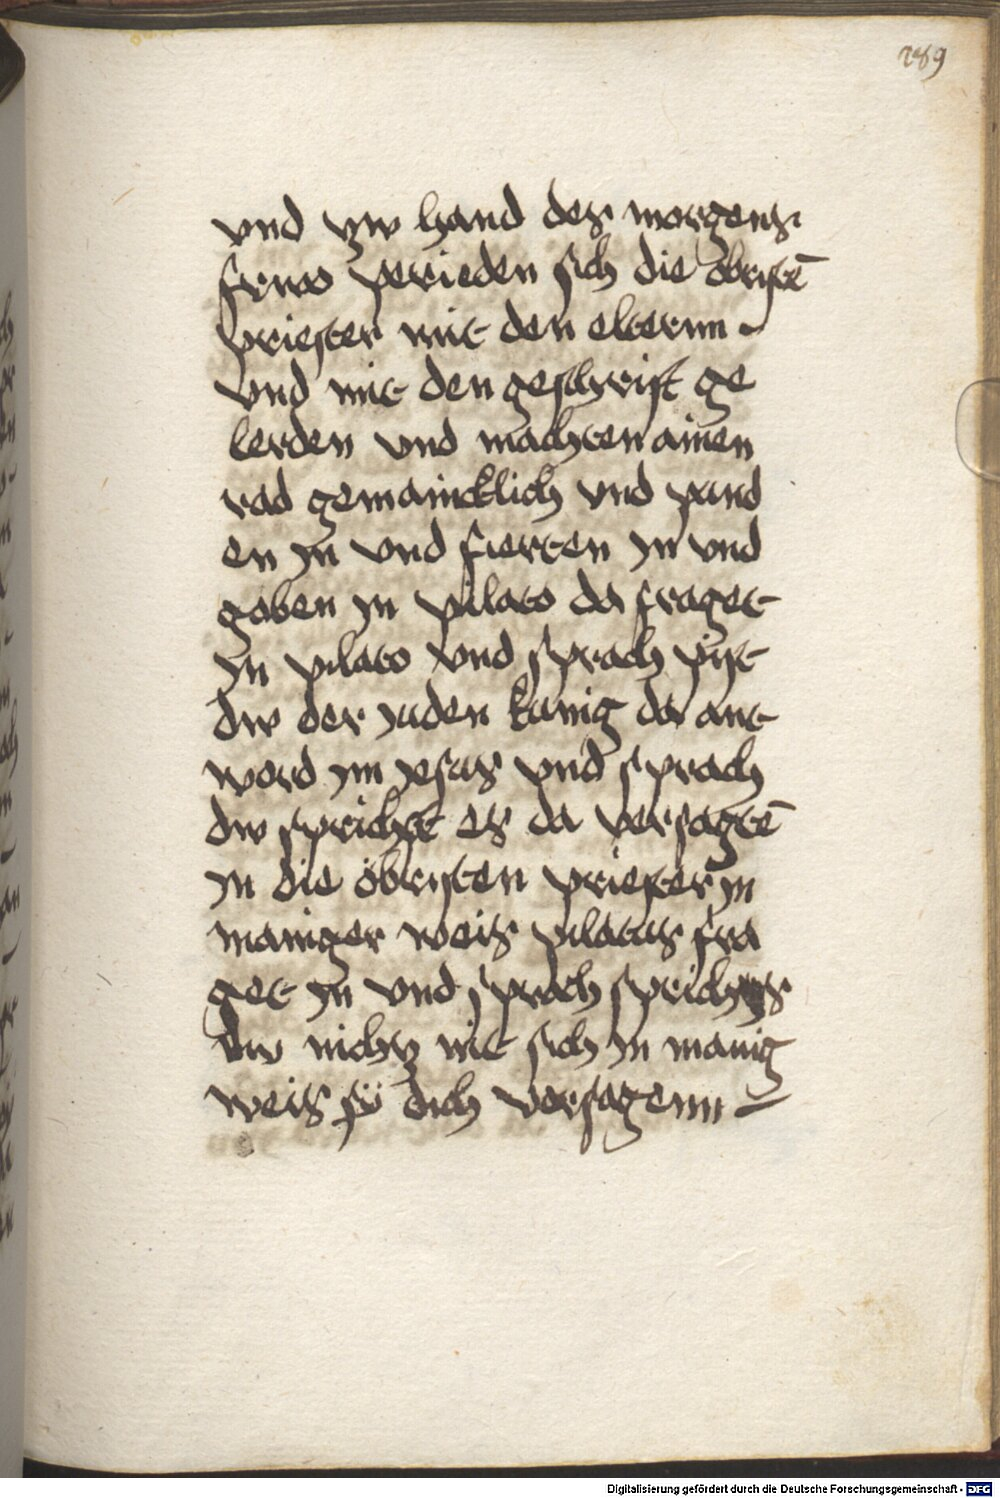 189
vnd zw hand des morgens
frwo perieden sich die öbristē
priester mit den elternn
vnd mit den geschrift ge
lerden vnd machten ainen
rad gemaincklich vnd pund
en jn vnd fierten jn vnd
gaben jn pilato da fraget
jn pilato vnd sprach pist
dw der juden kunig da ant
word jm jesus vnd sprach
dw sprichst es da versagtē
jn die öbristen priester jn
maniger weis pilatus fra
get jn vnd sprach
dw nichtz nit sich jn manig
weis sÿ dich versagenn
Digitalisierung gefördert durch die Deutsche Forschungsgemeinschaft - DFG